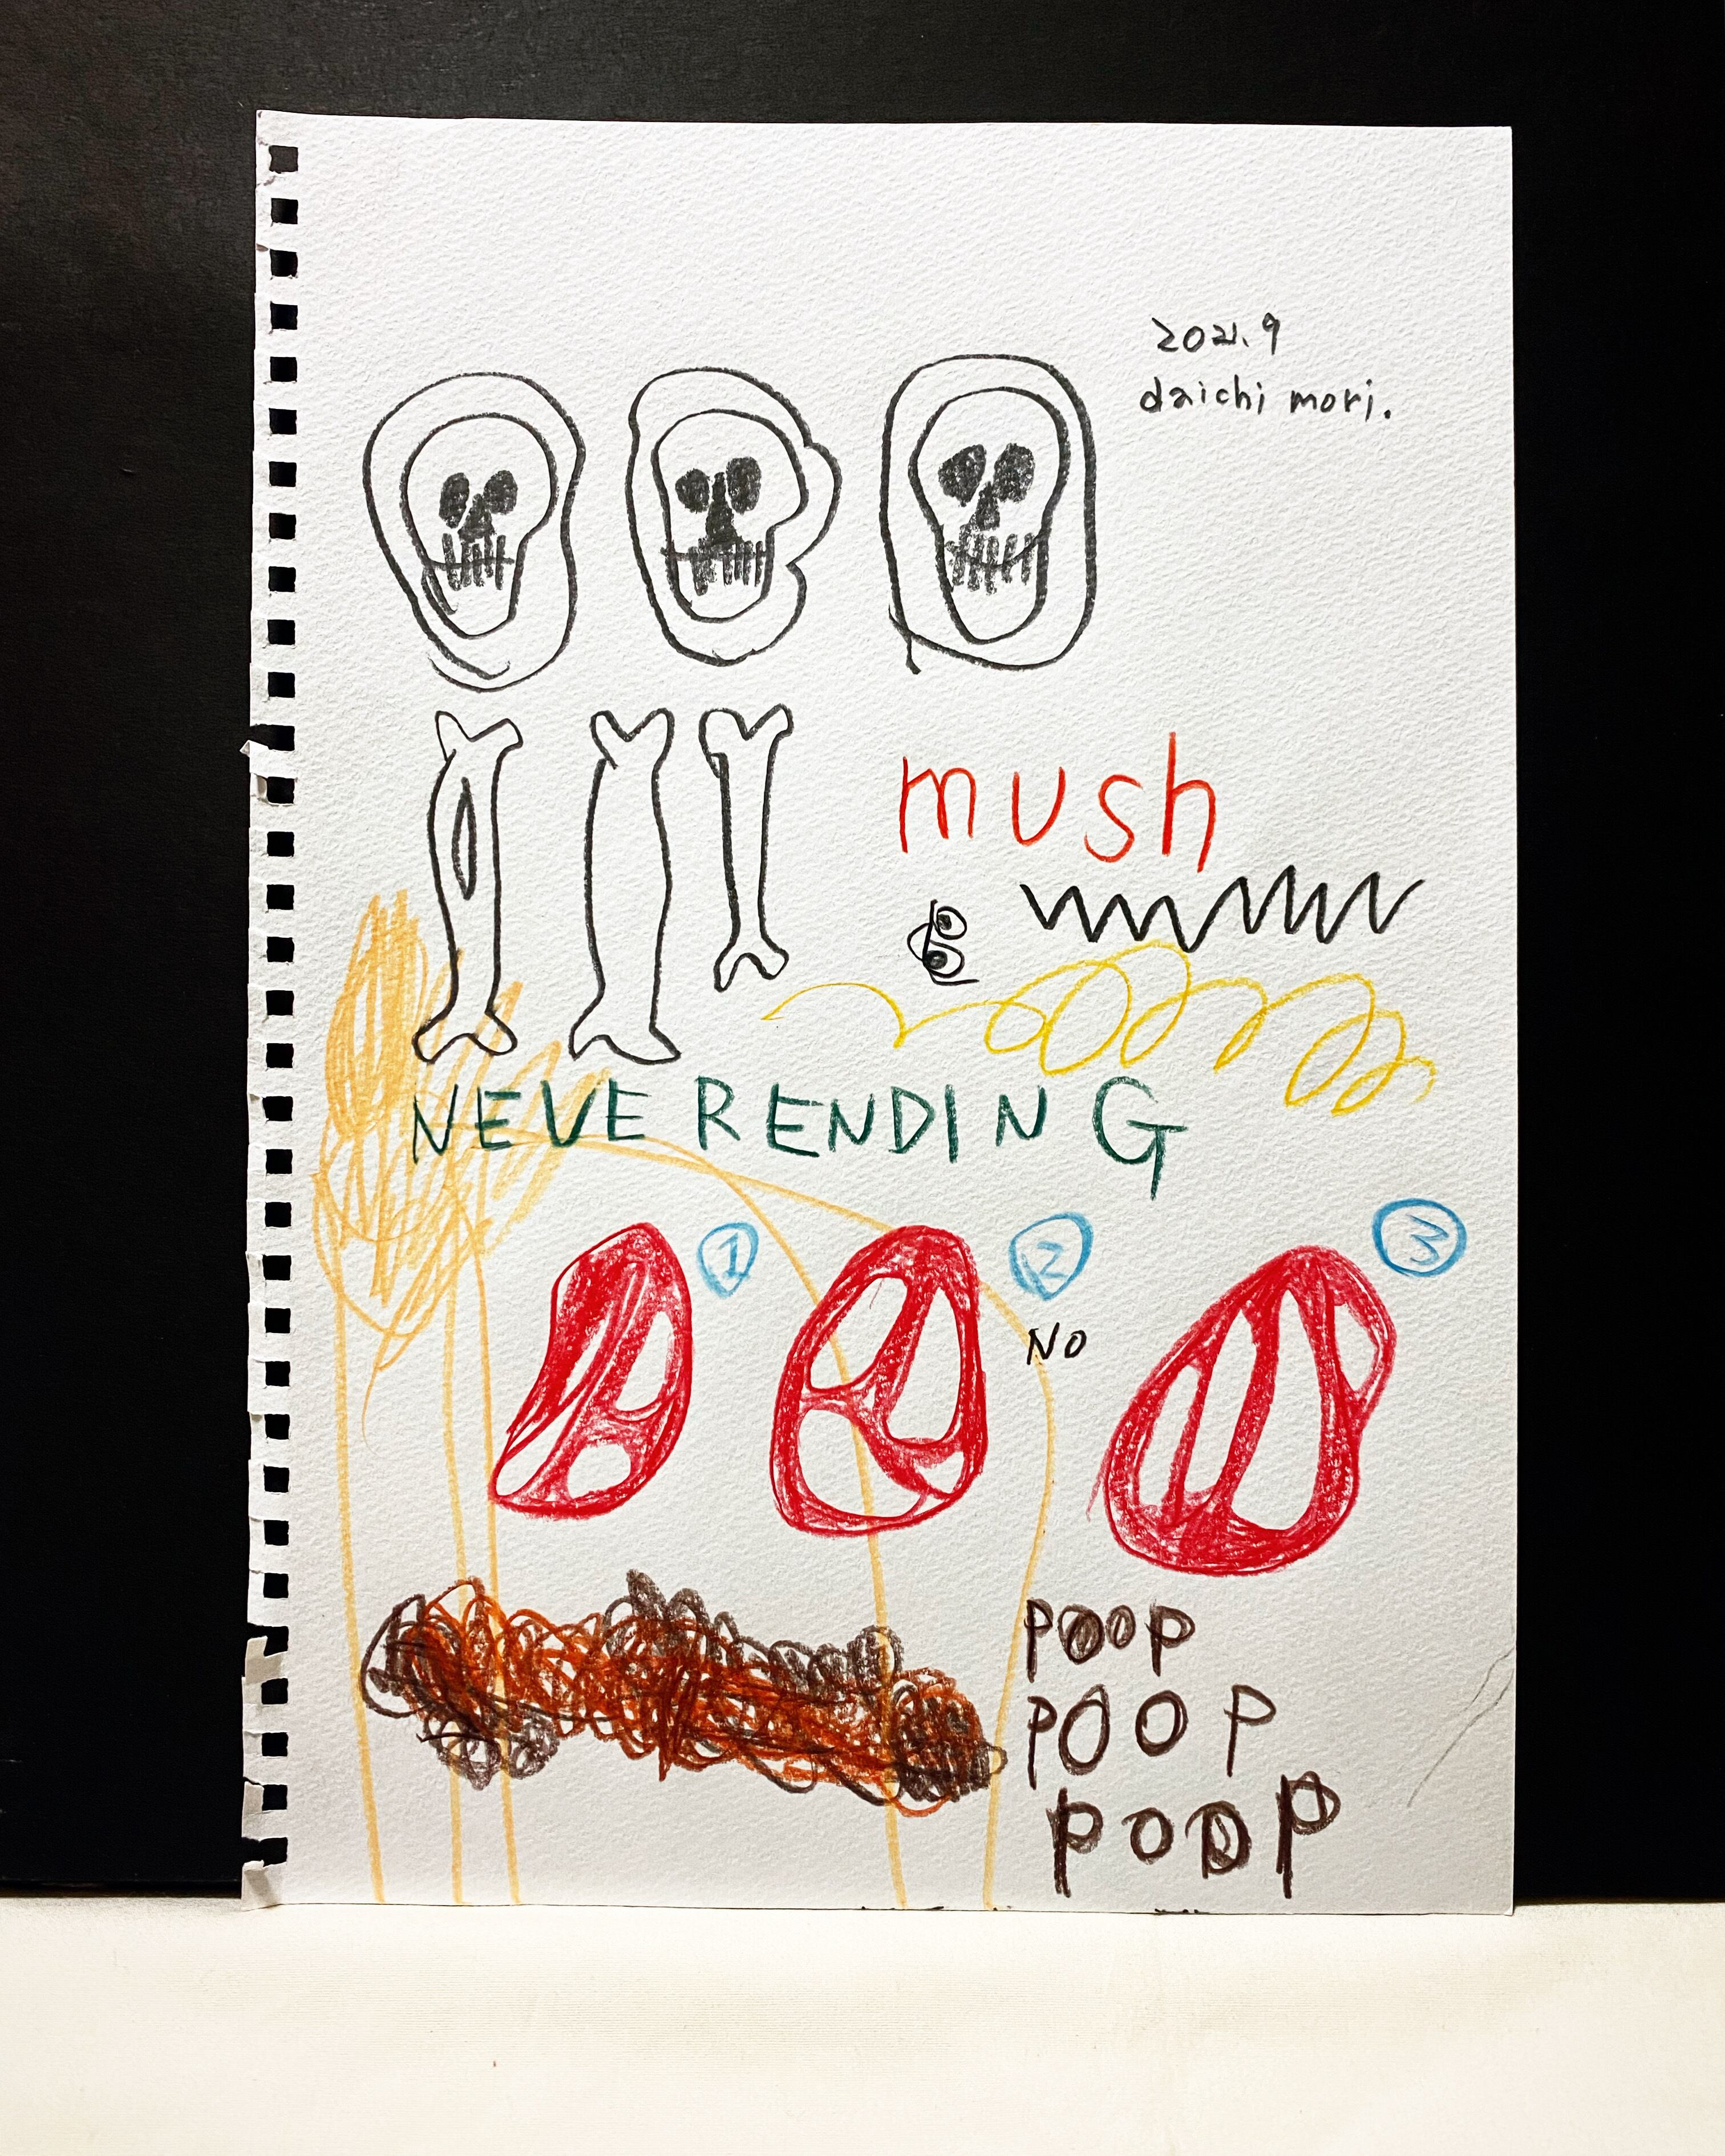 2021.9
daichi mori.
mush
NEVERENDING
① ② ③
NO
POOP
POOP
POOP